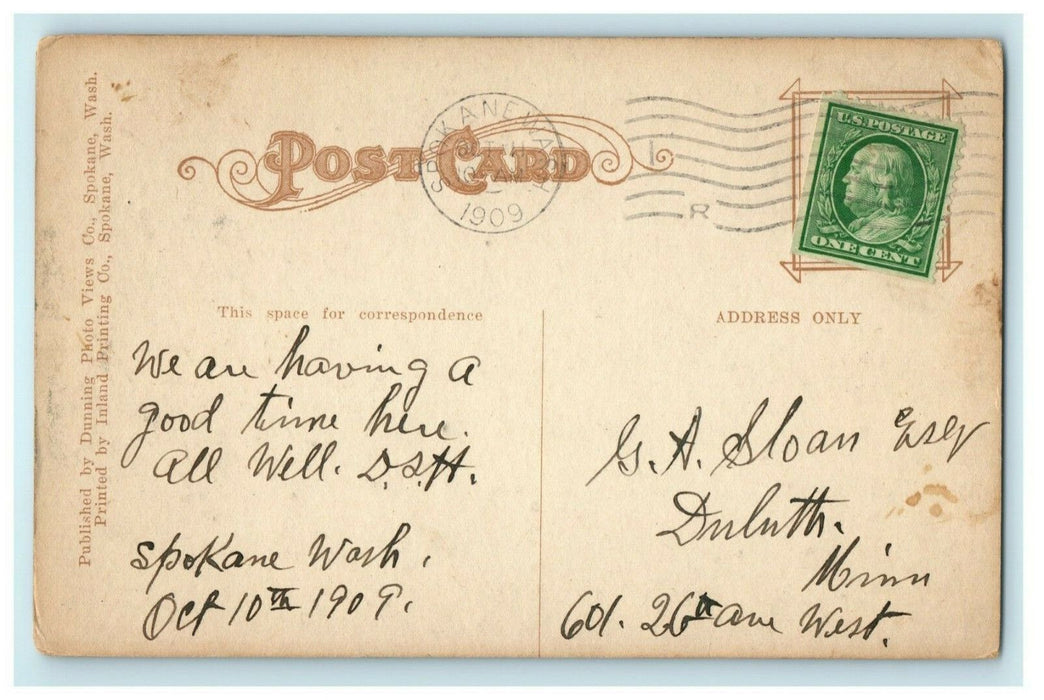 Published by Dunning Photo Views Co., Spokane, Wash.
Printed by Inland Printing Co., Spokane, Wash.
POST CARD
SPOKANE, WASH.
1909
R
U.S. POSTAGE
ONE CENT
This space for correspondence
We are having a
good time here.
All Well. D.S.H.
Spokane Wash.
Oct 10th 1909.
ADDRESS ONLY
G. A. Sloan Esqr
Duluth.
Minn
601. 26th ave West.